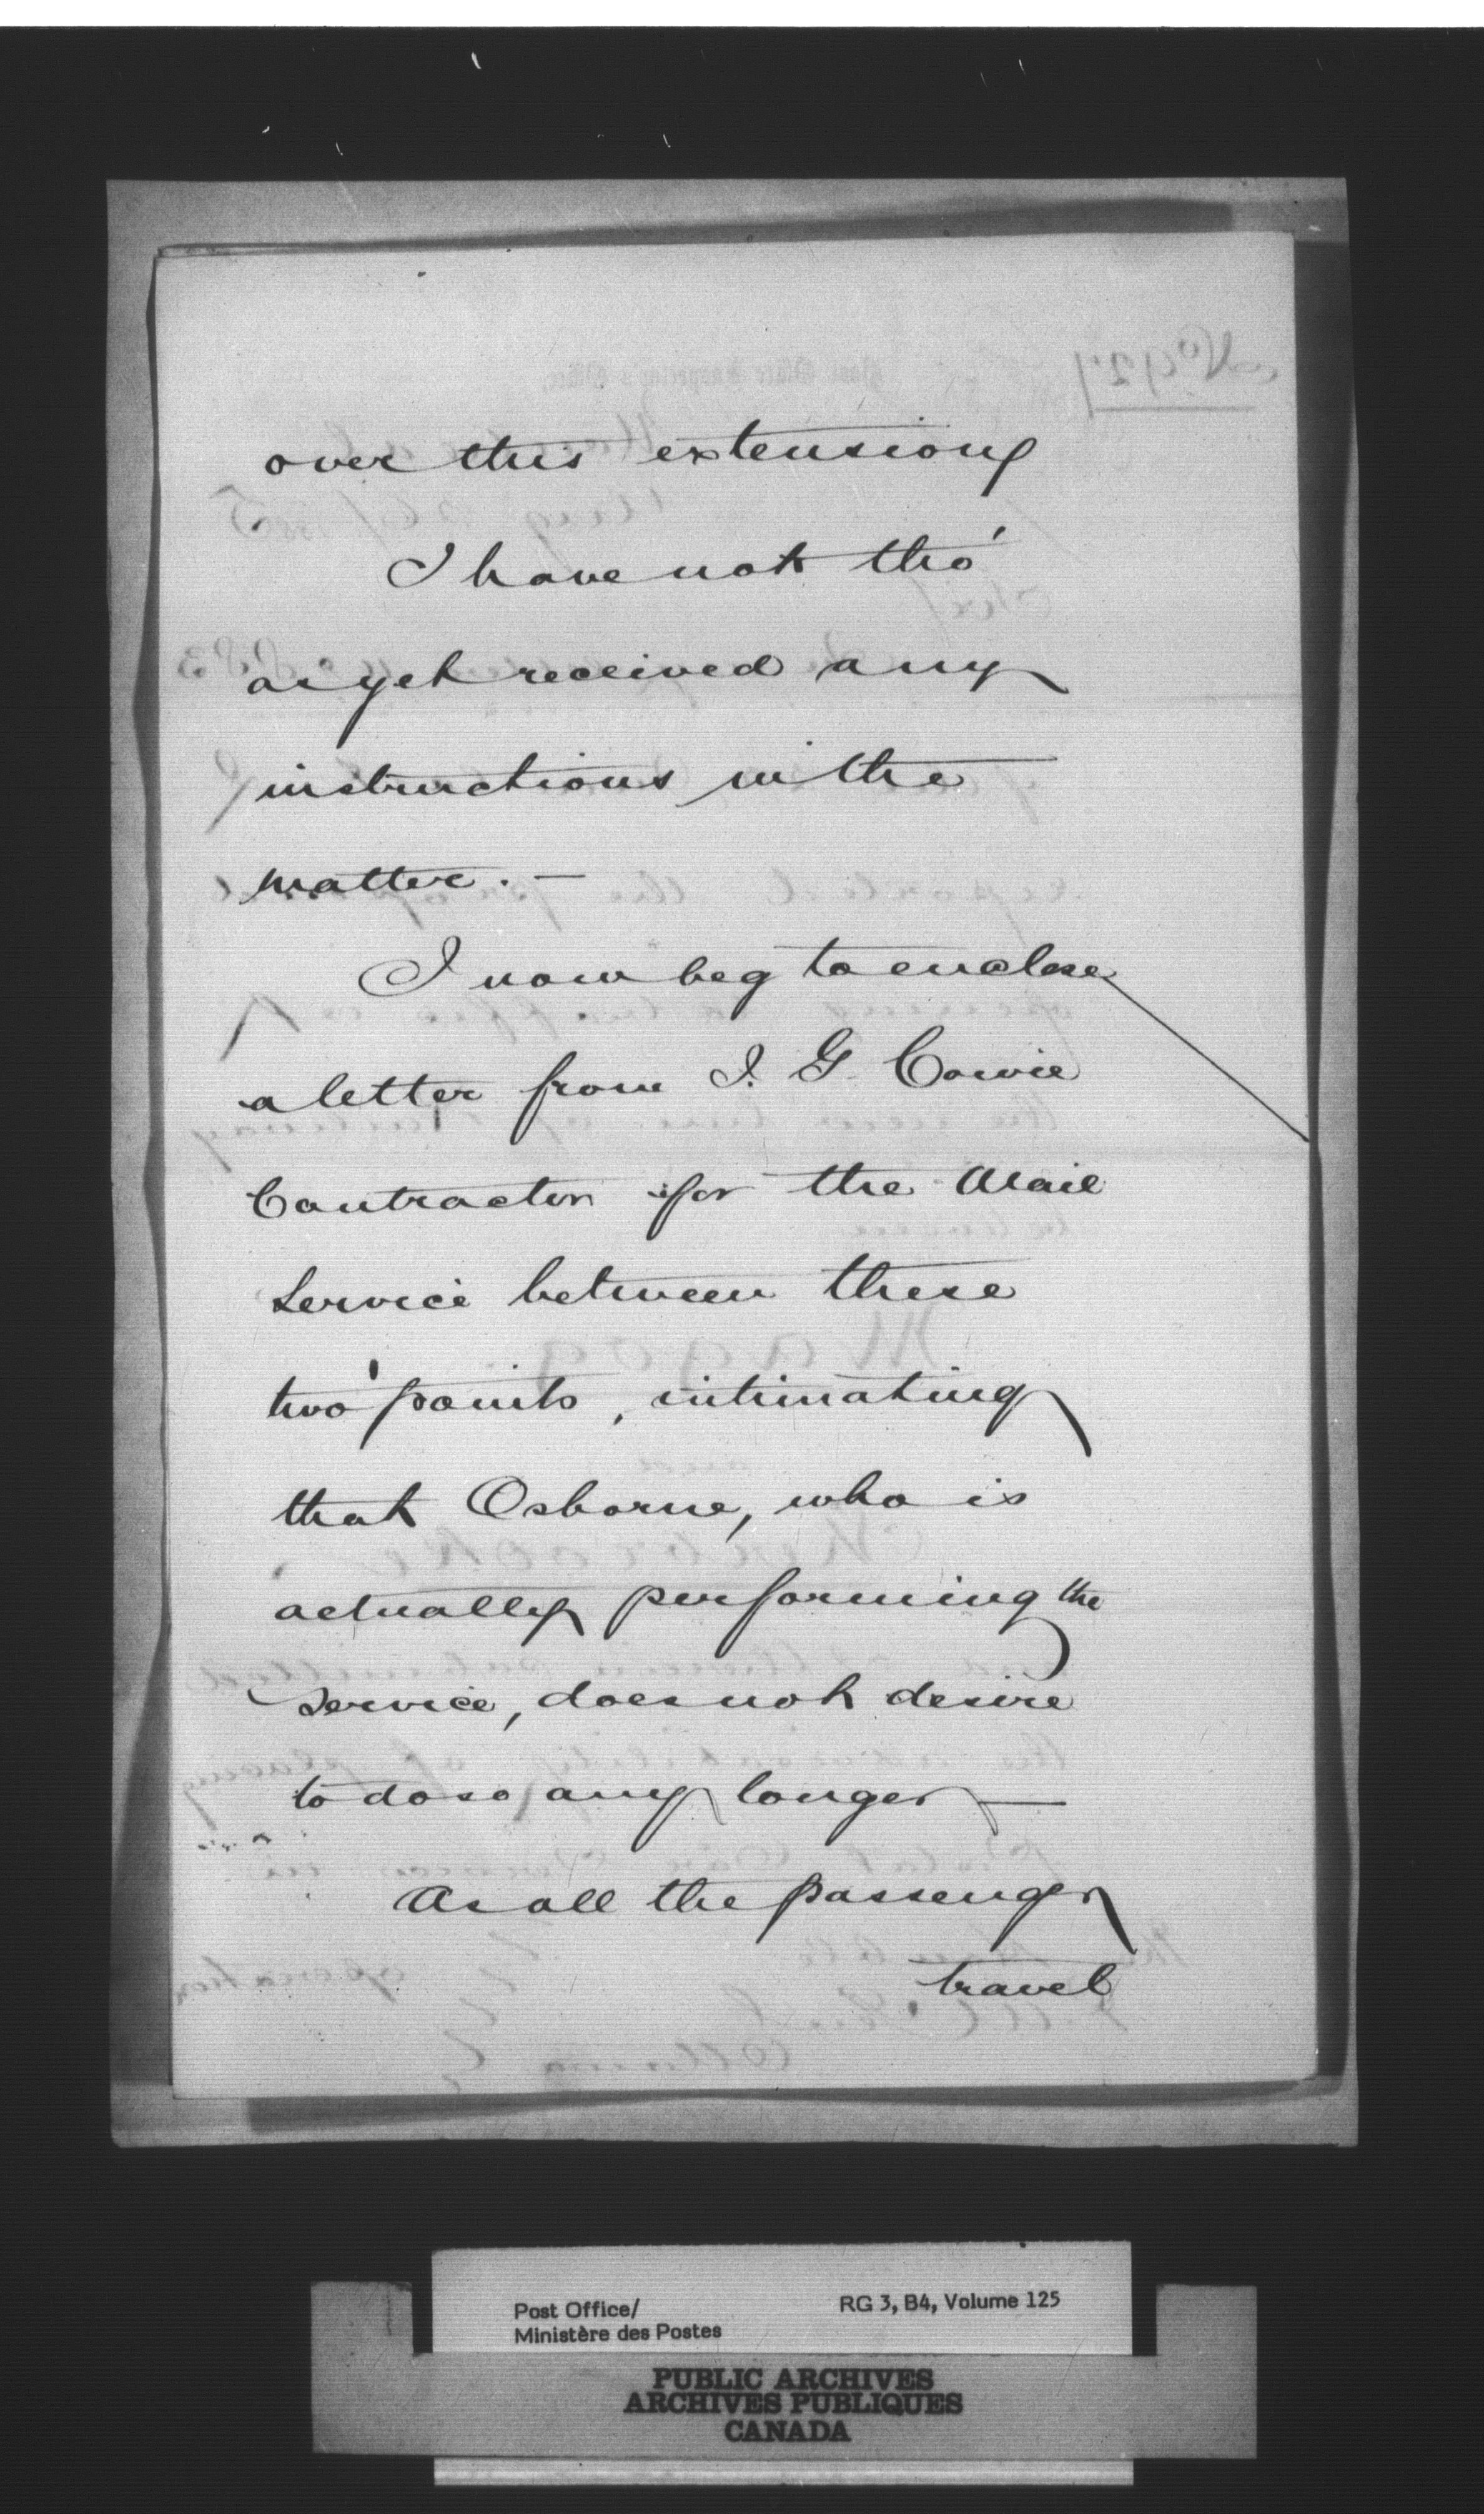 over this extension
I have not tho'
as yet received any
instructions in the
matter. —
I now beg to enclose
a letter from J. G. Cowie
Contractor for the Mail
Service between these
two points, intimating
that Osborne, who is
actually performing the
service, does not desire
to do so any longer —
As all the passenger
travel
Post Office/
Ministère des Postes
RG 3, B4, Volume 125
PUBLIC ARCHIVES
ARCHIVES PUBLIQUES
CANADA